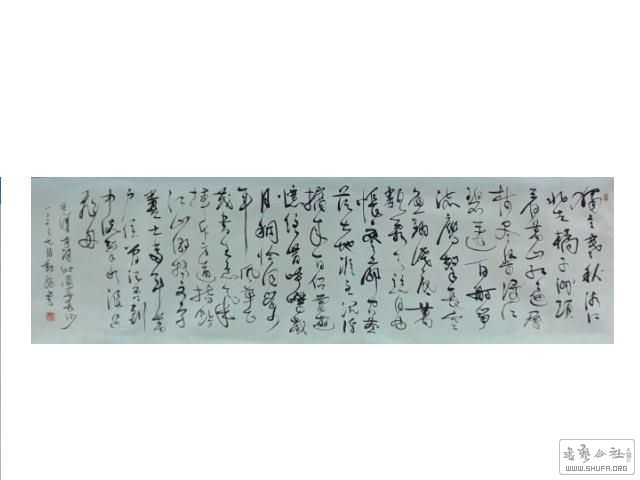 独立寒秋湘江
北去橘子洲头
看万山红遍层
林尽染漫江
碧透百舸争
流鹰击长空
鱼翔浅底万
类霜天竞自由
怅寥廓问苍
茫大地谁主沉浮
携来百侣曾游
忆往昔峥嵘岁
月稠恰同学少
年风华正
茂书生意气挥
斥方遒指点
江山激扬文字
粪土当年万
户侯曾记否到
中流击水浪遏
飞舟
毛泽东词沁园春长沙
七月
书
书艺公社
WWW.SHUFA.ORG